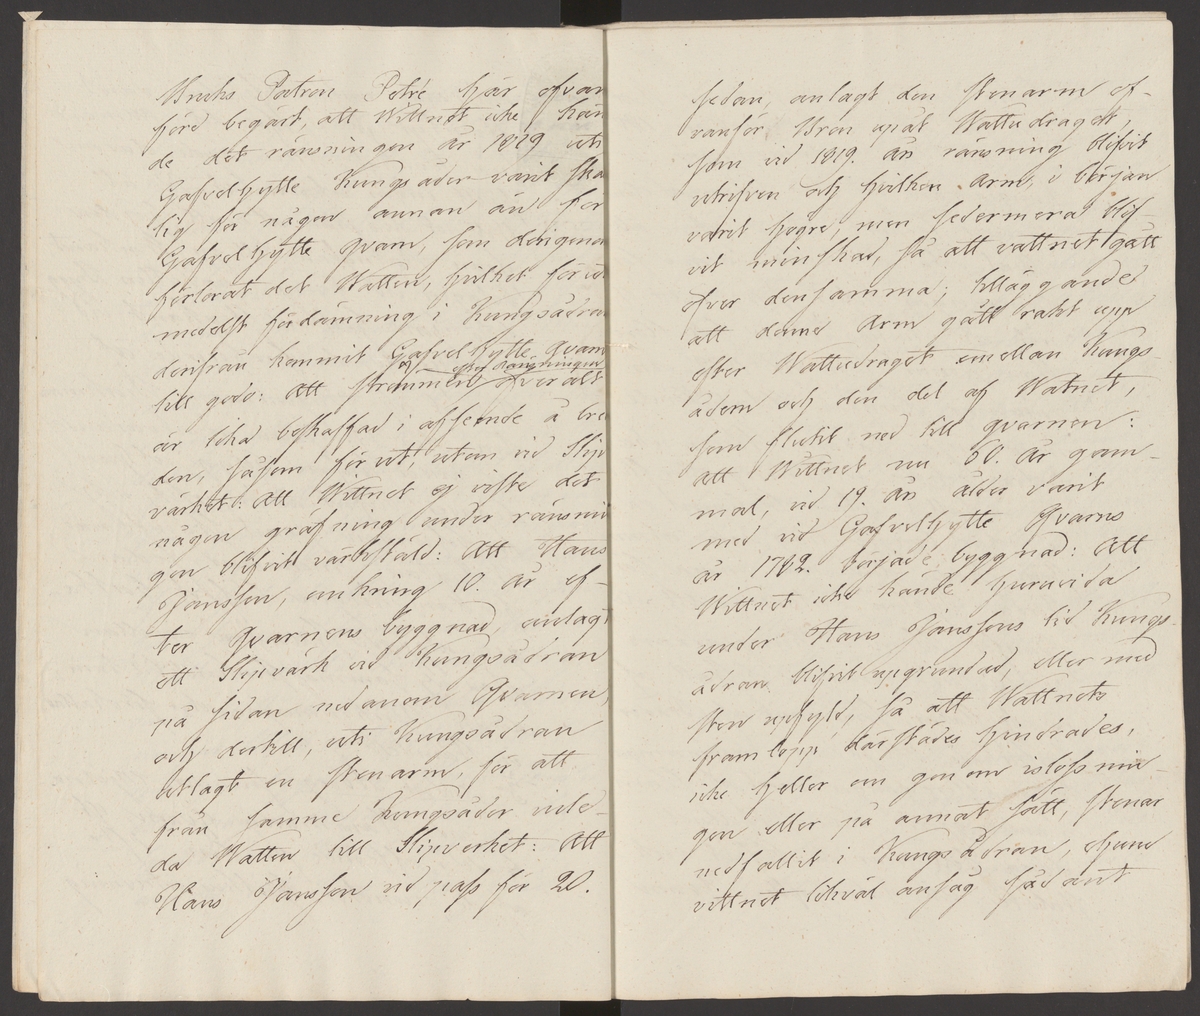 Bruks Patron Petré här ofvan
före begärt, att Wittnet icke kän
de det ränsningen år 1819 uti
Gafvelhytte Kungsåder varit skad
lig för någon annan än för
Gafvelhytte Qvarn, som derigenom
förlorat det Watten, hvilket förut
medelst fördämning i Kungsådran
derifrån kommit Gafvelhytte Qvarn
efter ränsningen
till godo: Att strömmen öfver alt
är lika beskaffad i afseende å bred
den, såsom förut, utom vid Slip
värket: Att Wittnet ej viste det
någon gräfning under ränsnin
gen blifvit värkstäld: Att Hans
Jansson, omkring 10. år ef-
ter Qvarnens byggnad, anlagt
ett Slipvärk vid Kungsådran
på sidan nedanom Qvarnen,
och dertill, uti Kungsådran
utlagt en stenarm, för att
från samma Kungsåder inle-
da Watten till Slipverket: Att
Hans Jansson vid pass för 20.
sedan, anlagt den stenarm of-
vanför Bron upåt Wattudraget,
som vid 1819. års ränsning blifvit
utrifven och hvilken Arm, i början
varit högre, men sedermera blif-
vit minskad, så att vattnet gått
öfver densamma; tilläggande
att denne Arm gått rakt upp
efter Wattudraget emellan Kungs-
ådern och den del af Watnet,
som flutit ned till qvarnen:
att Wittnet nu 60. år gam-
mal, vid 19. års ålder varit
med vid Gafvelhytte Qvarns
år 1782. började byggnad: Att
Wittnet icke kände huruvida
under Hans Janssons tid Kungs-
ådran blifvit upgrundad, eller med
sten upfyld, så att Wattnets
framlopp därstädes hindrades,
icke heller om genom islossnin-
gen eller på annat sätt, stenar
nedfallit i Kungsådran, ehuru
vittnet likväl ansåg sådant